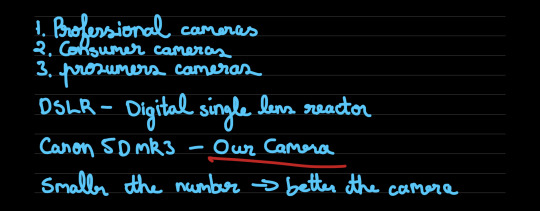 1. Professional cameras
2. Consumer cameras
3. prosumers cameras
DSLR - Digital single lens reactor
Canon 5D mk3 - Our Camera
Smaller the number → better the camera